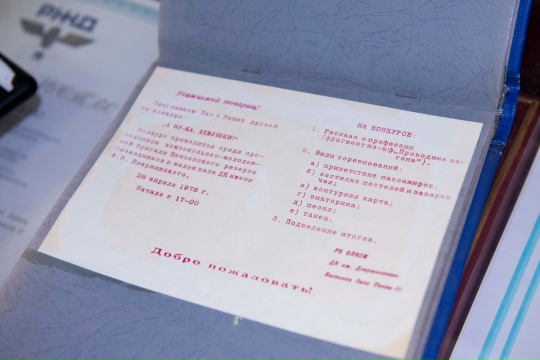 РЖД
Уважаемый товарищ!
Приглашаем Вас и Ваших друзей
на конкурс
"А НУ-КА, ДЕВУШКИ!"
Конкурс проводится среди про-
водников комсомольско-молодеж-
ной бригады Пензенского резерва
проводников в малом зале ДК имени
Ф. Э. Дзержинского.
28 апреля 1978 г.
Начало в 17-00
НА КОНКУРСЕ:
1. Рассказ о профессии
(фрагмент из к/ф „Проводник ва-
гона").
2. Виды соревнований:
а) приветствие пассажиров;
б) застилка постелей и заварка
чая;
в) контурная карта;
г) викторина;
д) песня;
е) танец.
3. Подведение итогов.
РК ВЛКСМ
ДК им. Дзержинского
Добро пожаловать!